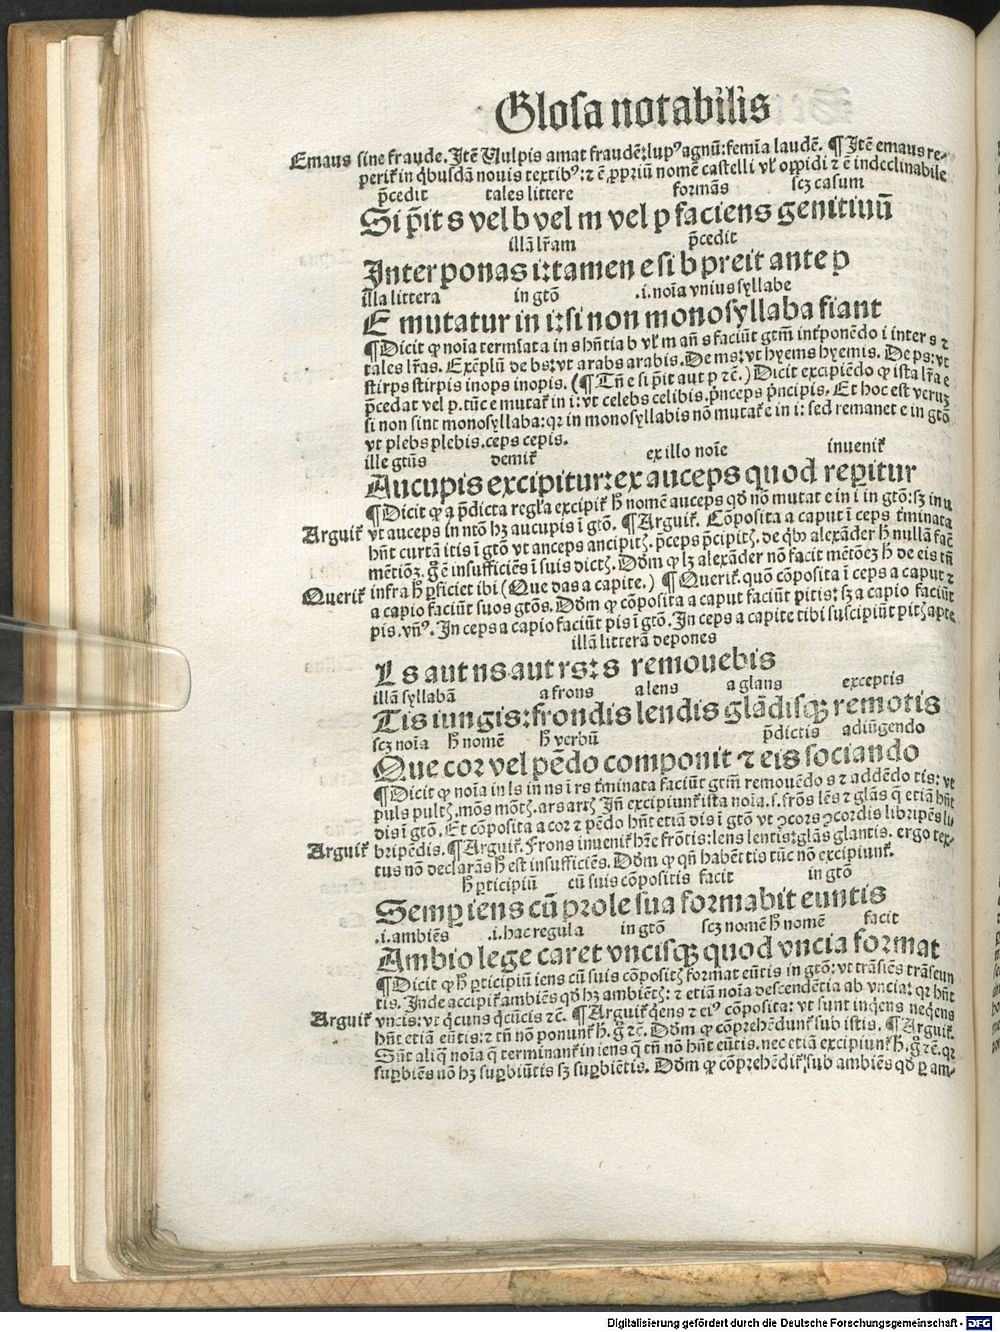 Glosa notabilis
Emaus sine fraude. Itē Vulpis amat fraudē: lupꝰ agnū: femīa laudē. ¶ Itē emaus re-
perit᷑ in q̇busdā nouis textibꝰ: ⁊ ē ꝓpriū nomē castelli vl' oppidi ⁊ ē indeclinabile
p̄cedit tales littere formās scꝫ casum
Si p̄it s vel b vel m vel p faciens genitiuū
illā lr̄am p̄cedit
Inter ponas i: tamen e si b preit ante p
illa littera in gtō .i. noīa vnius syllabe
E mutatur in i: si non monosyllaba fiant
¶ Dicit ꝙ noīa termīata in s hn̄tia b vl' m an̄ s faciūt gtm̄ int᷑ponēdo i inter s ⁊
tales lr̄as. Exēplū de bs: vt arabs arabis. De ms: vt hyems hyemis. De ps: vt
stirps stirpis inops inopis. (¶ Tn̄ e si p̄it aut p ⁊c̄.) Dicit excipiēdo ꝙ ista lr̄a e
p̄cedat vel p. tūc e mutat᷑ in i: vt celebs celibis. p̄nceps p̄ncipis. Et hoc est veruꝫ
si non sint monosyllaba: qr in monosyllabis nō mutat᷑ e in i: sed remanet e in gtō
vt plebs plebis. ceps cepis.
ille gtūs demit᷑ ex illo noīe inuenit᷑
Aucupis excipitur: ex auceps quod reꝑitur
¶ Dicit ꝙ a p̄dicta regl'a excipit᷑ h̄ nomē auceps qd̄ nō mutat e in i in gtō: sꝫ in u
Arguit᷑ vt auceps in ntō hꝫ aucupis ī gtō. ¶ Arguit᷑. Cōposita a caput ī ceps t᷑minata
hn̄t curtā itis ī gtō vt anceps ancipitꝭ. p̄ceps p̄cipitꝭ. de q̇bꝰ alexāder h̄ nullā fac̄
mētiōꝫ. g̊ ē insufficiēs ī suis dictꝭ. Dōm ꝙ lꝫ alexāder nō facit mētōeꝫ h̄ de eis tn̄
Querit᷑ infra h̄ ꝑficiet ibi (Que das a capite.) ¶ Querit᷑. quō cōposita ī ceps a caput ⁊
a capio faciūt suos gtōs. Dōm ꝙ cōposita a caput faciūt pitis: sꝫ a capio faciūt
pis. vn̄ꝰ. In ceps a capio faciūt pis ī gtō. In ceps a capite tibi suscipiūt pitꝭ apte
illā litterā depones
Ls aut ns aut rs: s remouebis
illā syllabā a frons a lens a glans exceptis
Tis iungis: frondis lendis glādisqꝫ remotis
scꝫ noīa h̄ nomē h̄ verbū p̄dictis adiūgendo
Que cor vel pēdo componit ⁊ eis sociando
¶ Dicit ꝙ noīa in ls in ns ī rs t᷑minata faciūt gtm̄ remouēdo s ⁊ addēdo tis: vt
puls pultꝭ. mōs mōtꝭ. ars artꝭ. In̄ excipiunt᷑ ista noīa. s. frōs lēs ⁊ glās q̄ etiā hn̄t
dis ī gtō. Et cōposita a cor ⁊ pēdo hn̄t etiā dis ī gtō vt ꝯcors ꝯcordis libripēs li-
Arguit᷑ bripēdis. ¶ Arguit᷑. Frons inuenit᷑ hr̄e frōtis: lens lentis: glās glantis. ergo tex-
tus nō declarās h̄ est insufficiēs. Dōm ꝙ qn̄ habēt tis tūc nō excipiunt᷑.
h̄ ꝑticipiū cū suis cōpositis facit in gtō
Semꝑ iens cū prole sua formabit euntis
.i. ambiēs .i. hac regula in gtō scꝫ nomē h̄ nomē facit
Ambio lege caret vncisqꝫ quod vncia format
¶ Dicit ꝙ h̄ ꝑticipiū iens cū suis cōpositꝭ format eūtis in gtō: vt trāsiēs trāseun
tis. Inde accipit᷑ ambiēs qd̄ hꝫ ambiētꝭ: ⁊ etiā noīa descendētia ab vncia: qr hn̄t
Arguit᷑ vncis: vt q̇cuns q̇cūcis ⁊c̄. ¶ Arguit᷑ q̇ens ⁊ eiꝰ cōposita: vt sunt inq̇ens neq̇ens
hn̄t etiā eūtis: ⁊ tn̄ nō ponunt᷑ h̄. g̊ ⁊c̄. Dōm ꝙ cōprehēdunt᷑ sub istis. ¶ Arguit᷑.
Sūt aliq̄ noīa q̄ terminant᷑ in iens q̄ tn̄ nō hn̄t eūtis. nec etiā excipiunt᷑ h̄. g̊ ⁊c̄. qr
suꝑbiēs nō hꝫ suꝑbiūtis sꝫ suꝑbiētis. Dōm ꝙ cōprehēdit᷑ sub ambiēs qd̄ ꝑ am-
Digitalisierung gefördert durch die Deutsche Forschungsgemeinschaft - DFG